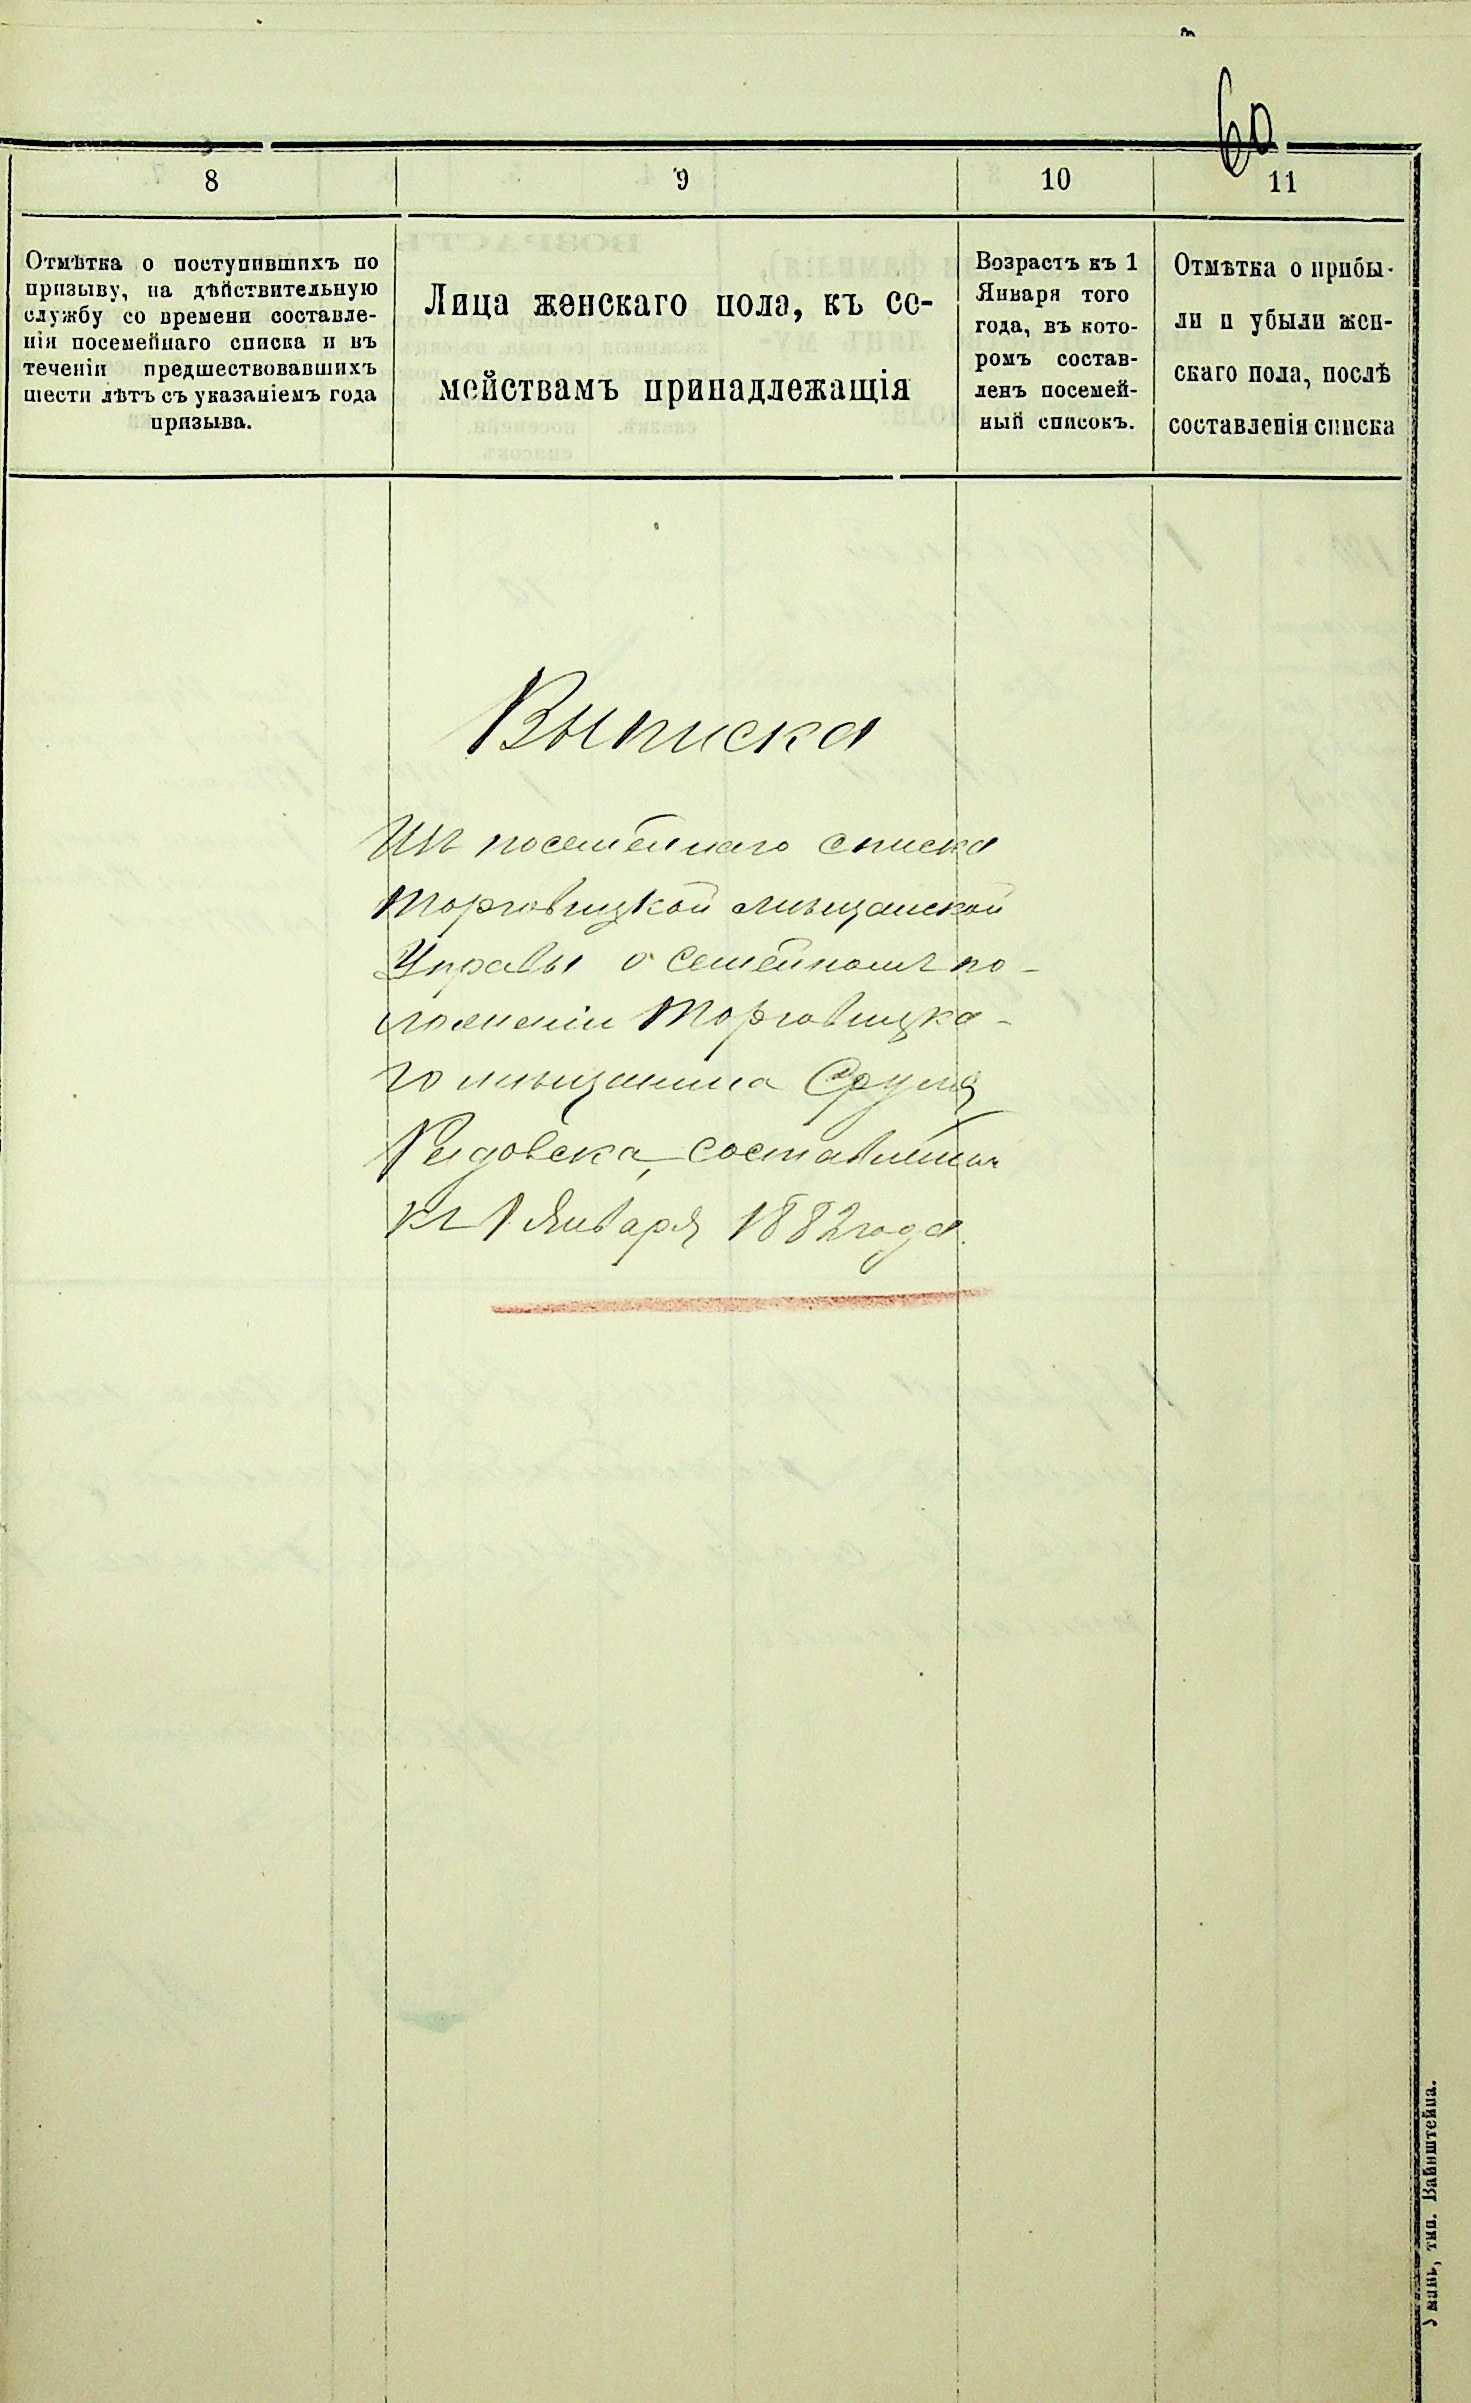 60
8 9 10 11
Отмѣтка о поступившихъ по
призыву, на дѣйствительную
службу со времени составле-
нія посемейнаго списка и въ
теченіи предшествовавшихъ
шести лѣтъ съ указаніемъ года
призыва.
Лица женскаго пола, къ се-
мействамъ принадлежащія
Возрастъ къ 1
Января того
года, въ кото-
ромъ состав-
ленъ посемей-
ный списокъ.
Отмѣтка о прибы-
ли и убыли жен-
скаго пола, послѣ
составленія списка
Выписка
Изъ посемейнаго списка
Торговицкой мѣщанской
Управы о семейномъ по-
ложеніи Торговицка-
го мѣщанина Сруля
составленная
къ 1 Января 1882 года.
Умань, тип. Вайнштейна.